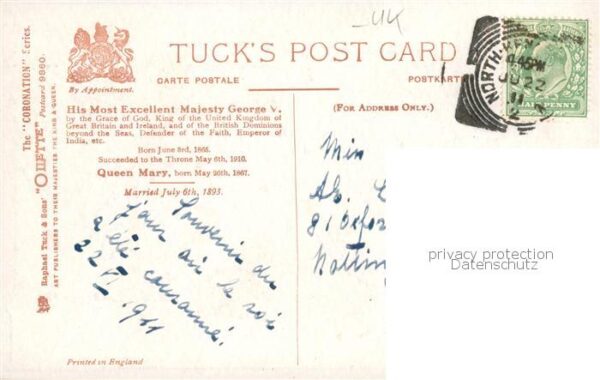 The "CORONATION" Series.
"OILETTE" Postcard 9860.
Raphael Tuck & Sons'
ART PUBLISHERS TO THEIR MAJESTIES THE KING & QUEEN.
By Appointment.
TUCK'S POST CARD
CARTE POSTALE
POSTKART
UK
His Most Excellent Majesty George V.
by the Grace of God, King of the United Kingdom of
Great Britain and Ireland, and of the British Dominions
beyond the Seas, Defender of the Faith, Emperor of
India, etc.
Born June 3rd, 1865.
Succeeded to the Throne May 6th, 1910.
Queen Mary, born May 26th, 1867.
Married July 6th, 1893.
(For Address Only.)
Souvenir du
jour où le roi
a été couronné.
22 VI 1911
Printed in England
NORTH-KEN
4.45PM
JU 22
11
HALFPENNY
Miss
81 Oxfor
Notting
privacy protection
Datenschutz